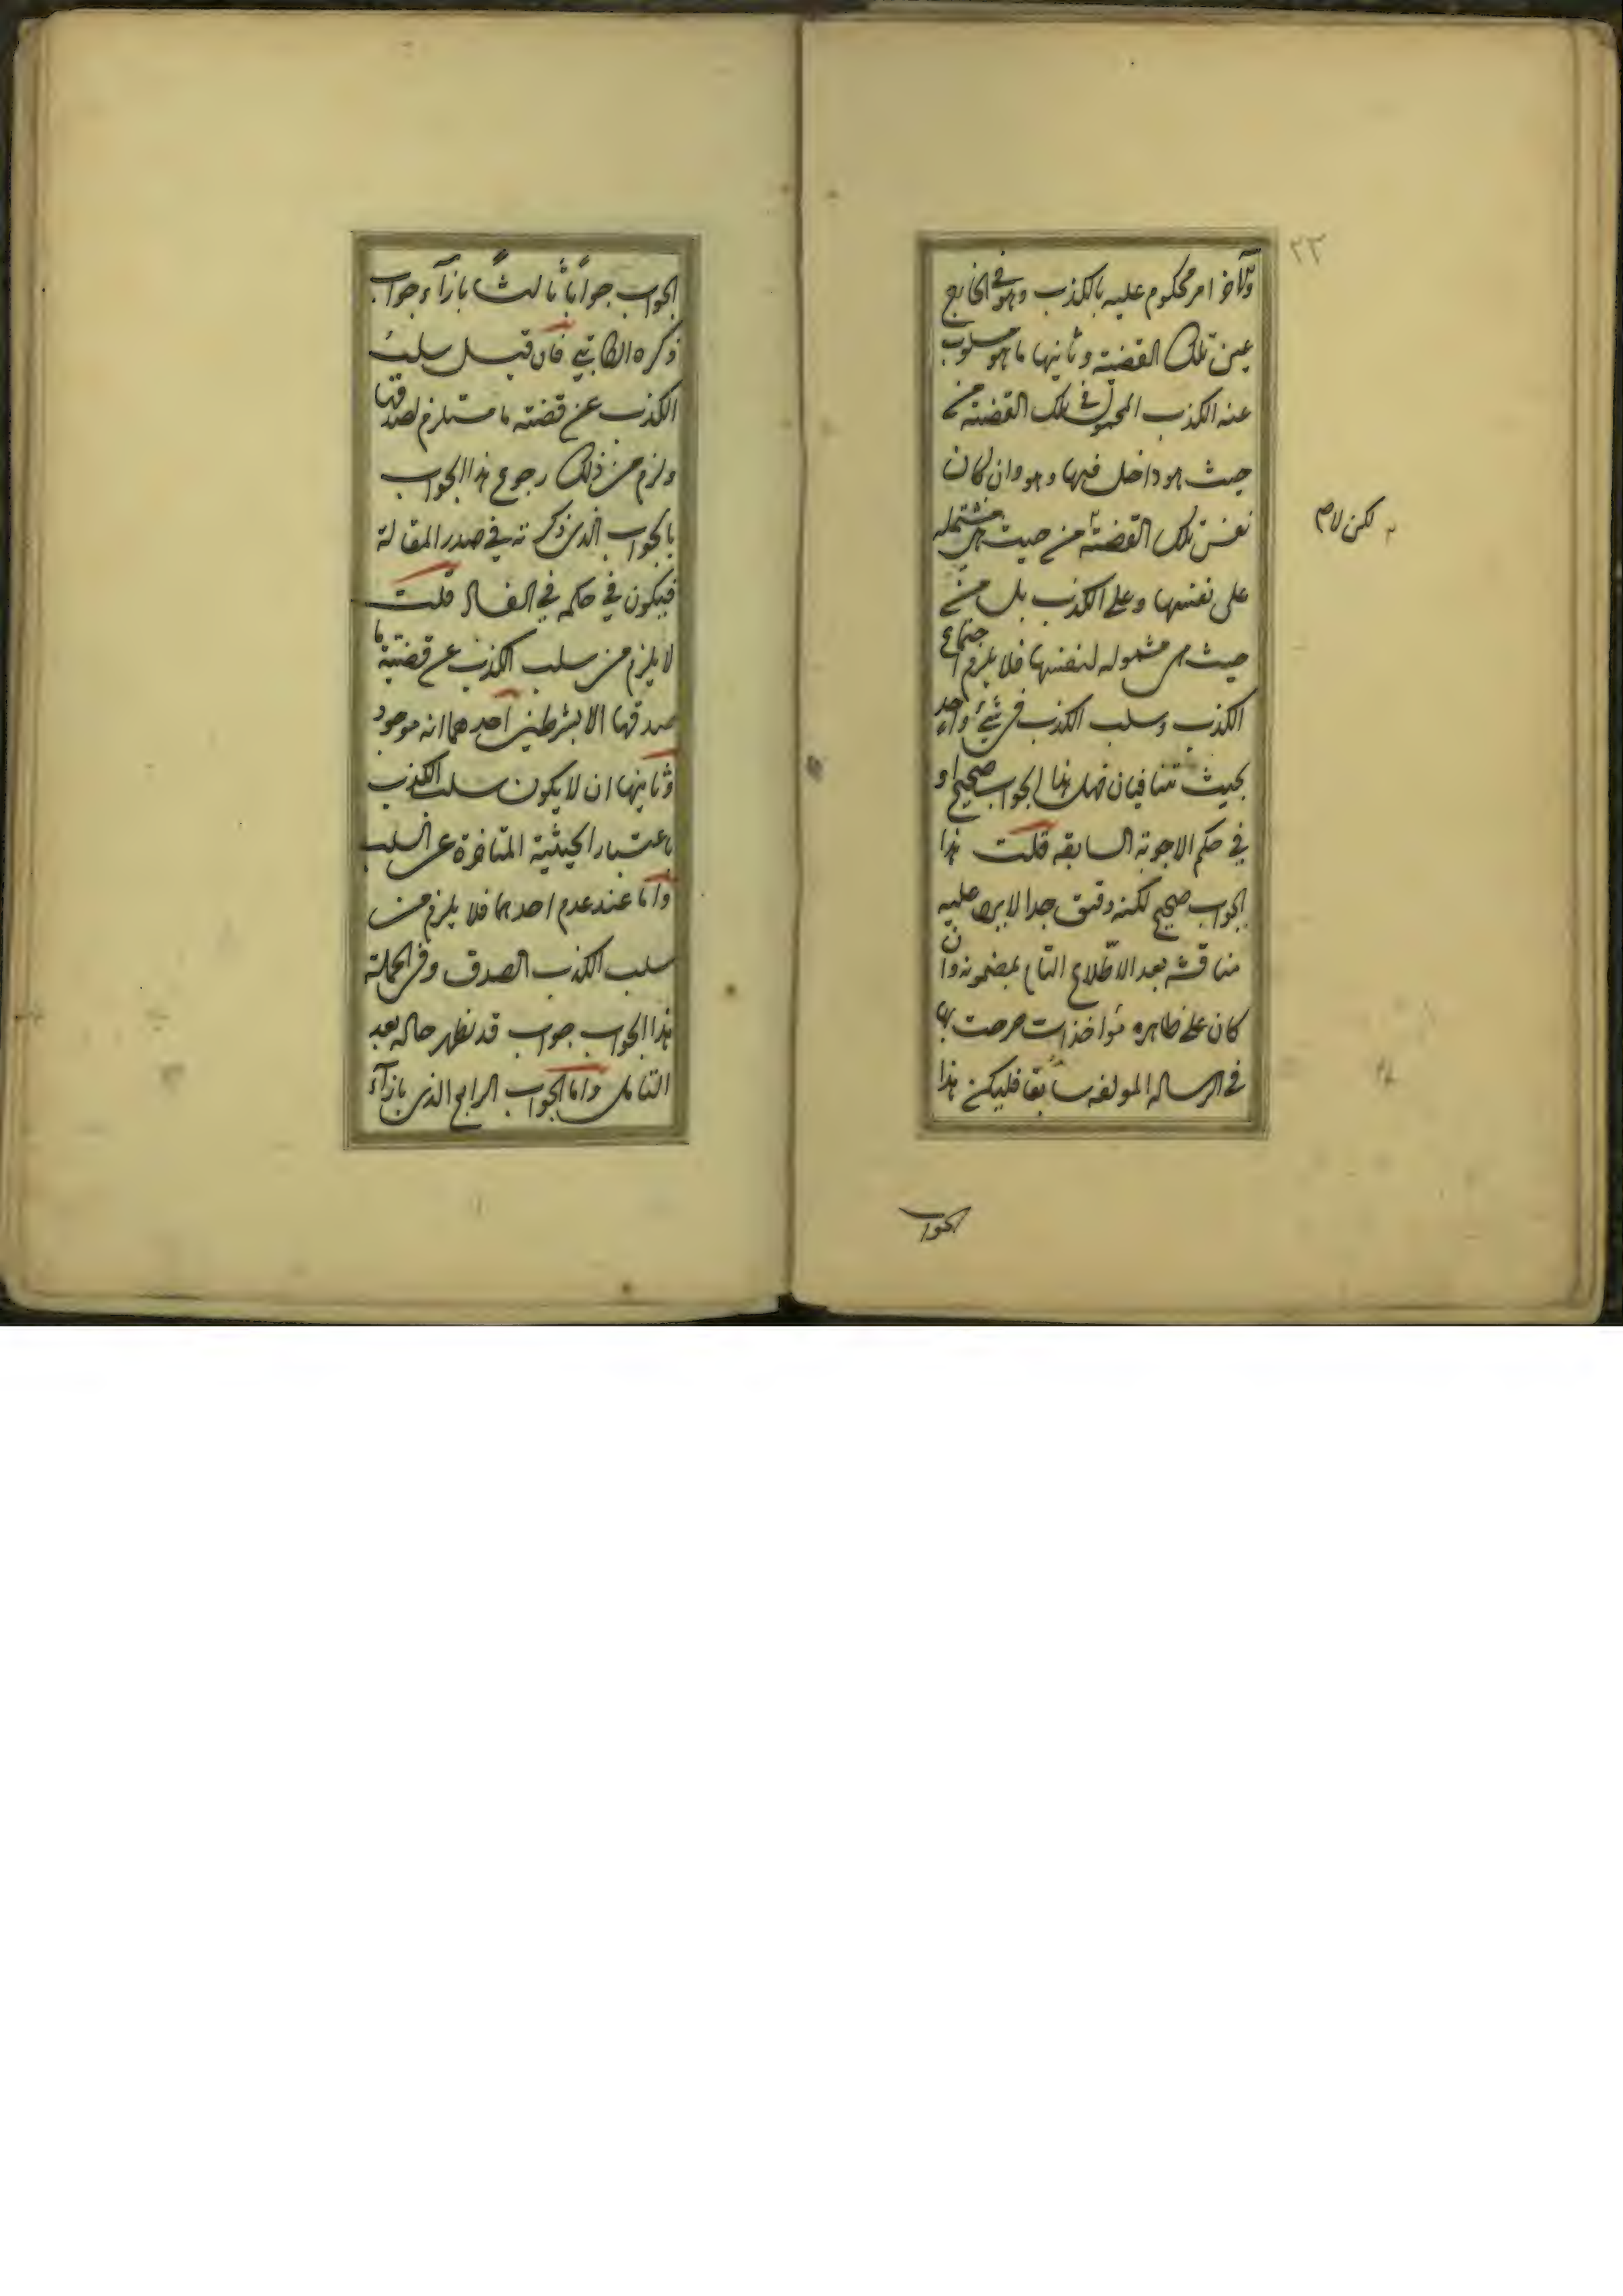 وللآخر امر محكوم عليه بالكذب وهو في الخارج
عين تلك القضية وثانيها ما هو مسلوب
عنه الكذب المحمول في تلك القضية من
حيث هو داخل فيها وهو وان كان
نفس تلك القضية من حيث هي مشتملة
على نفسها وعلى الكذب بل من
حيث هي مشموله لنفسها فلا يلزم اجتماع
الكذب وسلب الكذب في شيء واحد
بحيث تتنافيان فهل هذا الجواب صحيح او
في حكم الاجوبة السابقه قلت هذا
الجواب صحيح لكنه دقيق جدا لا يرد عليه
مناقشه بعد الاطّلاع التام بمضمونه وان
كان على ظاهره مؤاخذات صرحت بها
في الرساله المولفه سابقا فليكن هذا
الجواب
٢٣
لكن لا من
الجواب جواباً ثالثاً بازآء جواب
ذكره الكاتبي فان قيل سلب
الكذب عن قضية ما مستلزم لصدقها
ولزم من ذلك رجوع هذا الجواب
بالجواب الذي ذكرته في صدر المقالة
فيكون في حكمه في الفساد قلت
لا يلزم من سلب الكذب عن قضية ما
صدقها الا بشرطين احدهما انه موجود
وثانيها ان لا يكون سلب الكذب
باعتبار الحيثية المتاخرة عن السلب
واما عند عدم احدهما فلا يلزم من
سلب الكذب الصدق وفي الجملة
هذا الجواب جواب قد نظهر حاله بعد
التامل واما الجواب الرابع الذي بازآء